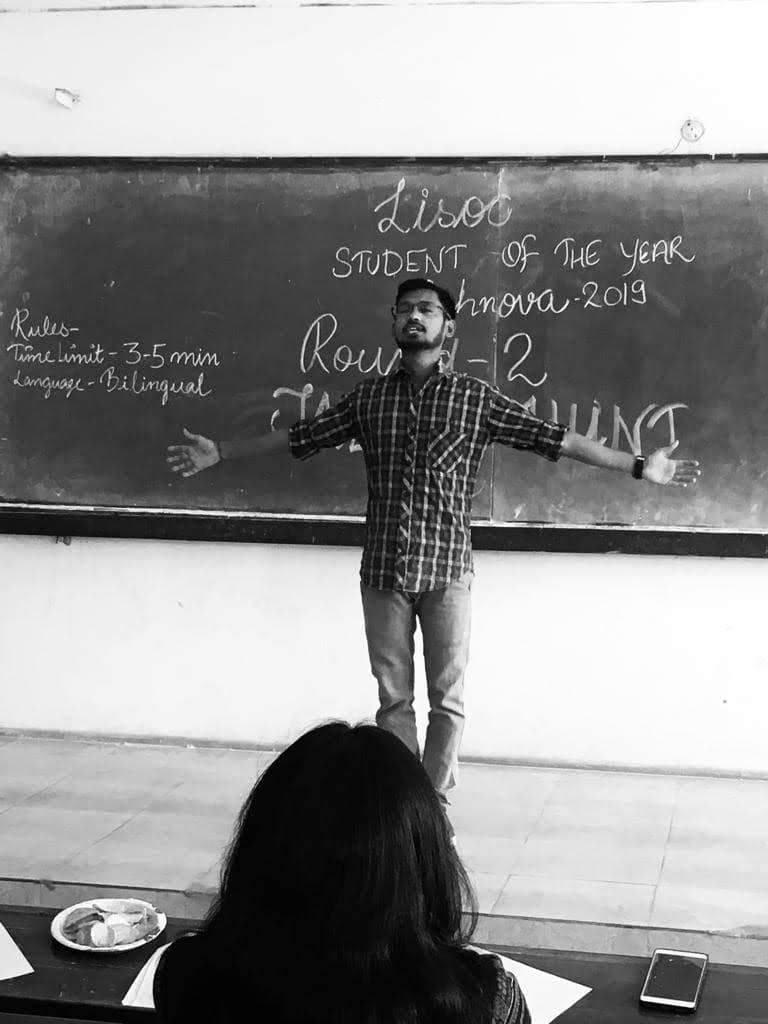 Lisoc
STUDENT OF THE YEAR
hnova-2019
Round-2
HUNT
Rules-
Time Limit - 3-5 min
Language - Bilingual